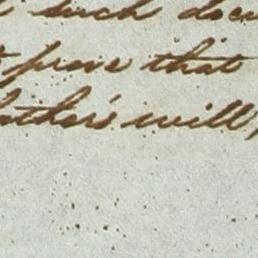 such docu
prove that
father's will,